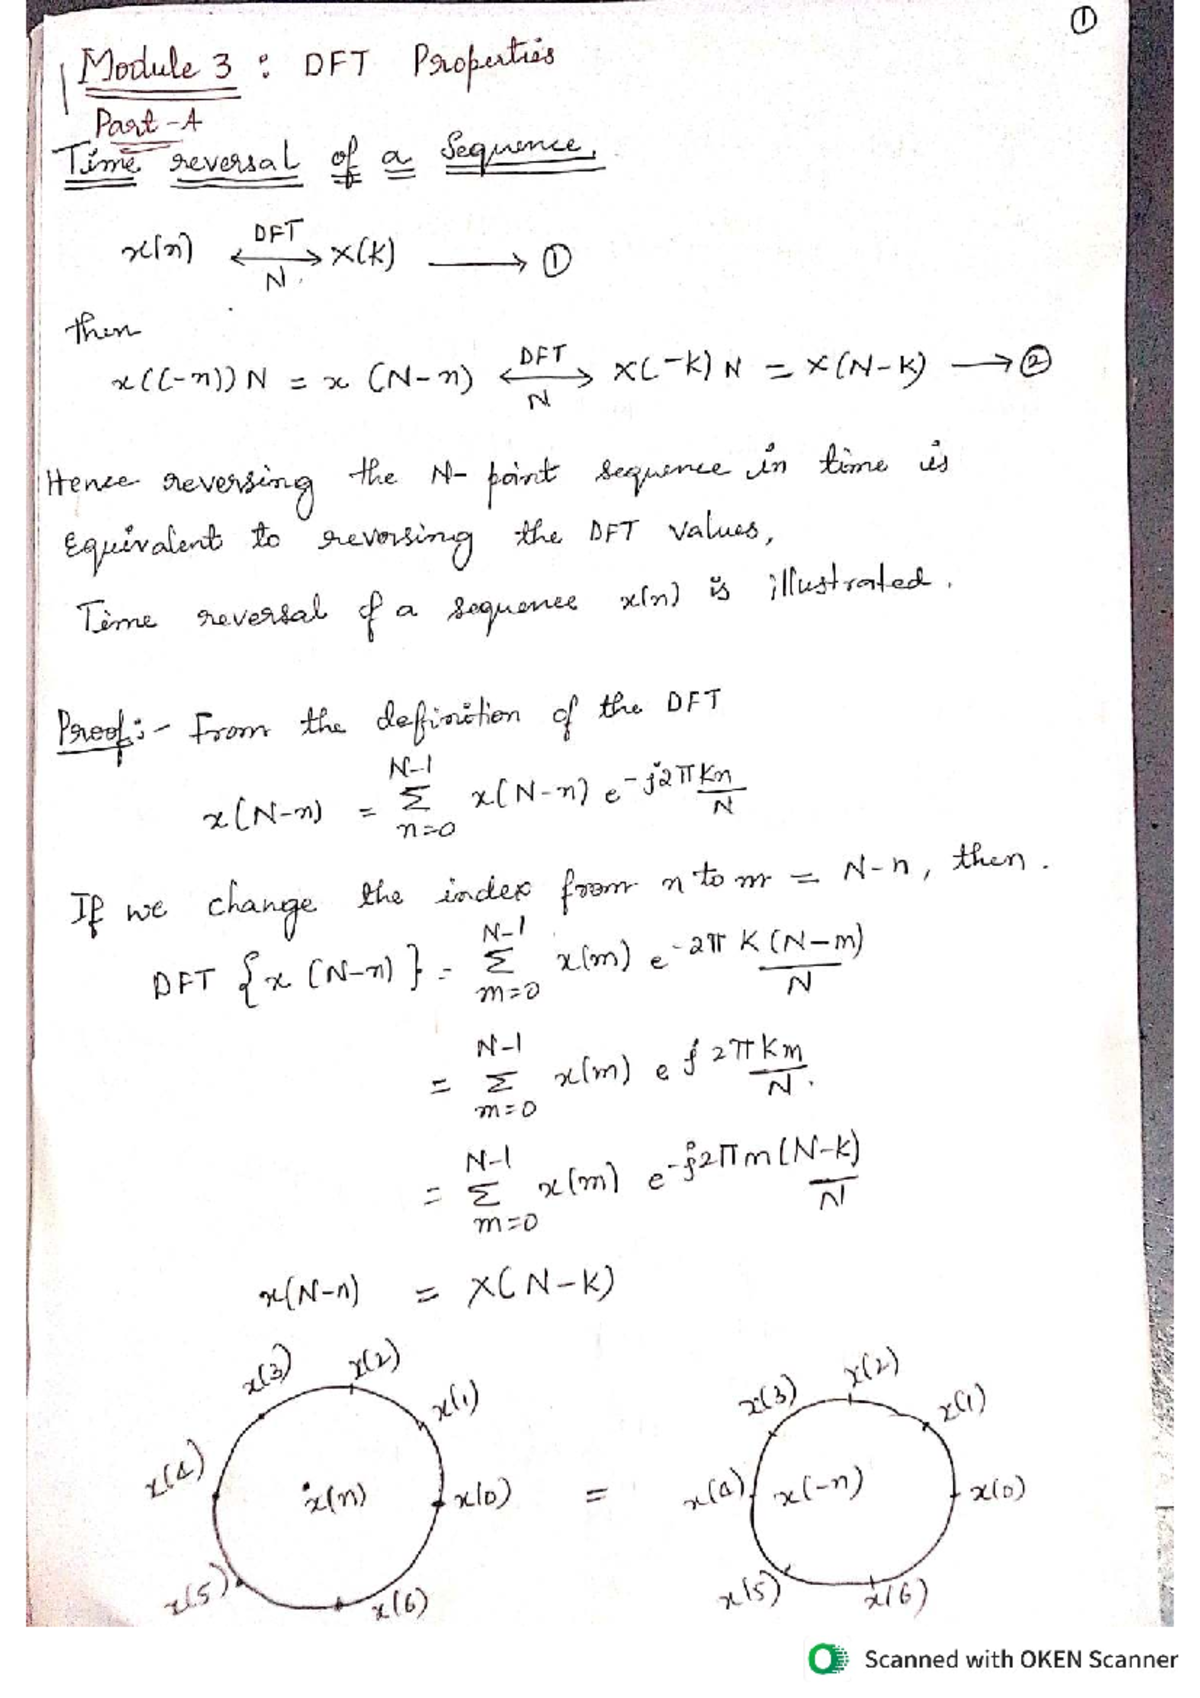 ①
Module 3 : DFT Properties
Part-A
Time reversal of a Sequence.
x(n) DFT ⟷ N. X(k) ⟶ ①
then
x((-n)) N = x (N-n) DFT ⟷ N X(-k) N = X(N-k) ⟶ ②
Hence reversing the N- point sequence in time is
Equivalent to reversing the DFT values,
Time reversal of a sequence x(n) is illustrated.
Proof:- From the definition of the DFT
x(N-n) = N-1 Σ n=0 x(N-n) e -j2πkn/N
If we change the index from n to m = N-n, then.
DFT {x (N-n)} = N-1 Σ m=0 x(m) e -2π k (N-m)/N
= N-1 Σ m=0 x(m) e j 2πkm/N.
= N-1 Σ m=0 x(m) e -j2πm(N-k)/N
x(N-n) = X(N-k)
x(3) x(2) x(1) x(4) x(n) x(0) x(5) x(6) = x(3) x(2) x(1) x(4) x(-n) x(0) x(5) x(6)
Scanned with OKEN Scanner